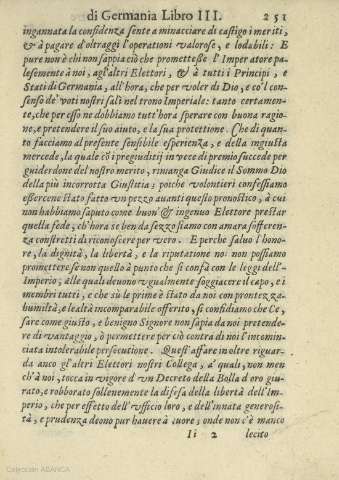 di Germania Libro III. 251
ingannata la confidenza sente a minacciare di castigo i meriti,
& à pagare d'oltraggi l'operationi valorose, e lodabili: E
pure non è chi non sappia ciò che promettesse l'Imperatore pa-
lesemente à noi, agl'altri Elettori, & à tutti i Principi, e
Stati di Germania, all'hora, che per voler di Dio, e cõ'l con-
senso de' voti nostri salì nel trono Imperiale: tanto certamen-
te, che per esso ne dobbiamo tutt'hora sperare con buona ragio-
ne, e pretendere il suo aiuto, e la sua protettione. Che di quan-
to facciamo al presente sensibile esperienza, e della ingiusta
mercede, la quale cõ i pregiuditij in vece di premio succede per
guiderdone del nostro merito, rimanga Giudice il Sommo Dio
della più incorrotta Giustitia: poiche volontieri confessiamo
essercene stato fatto vn pezzo auanti questo pronostico, à cui
non habbiamo saputo come buon' & ingenuo Elettore prestar
quella fede, ch'hora se ben da sezzo siamo con amara sofferen-
za constretti di riconoscere per vero. E perche saluo l'hono-
re, la dignità, la libertà, e la riputatione no: non possiamo
promettere se non quello à punto che si confà con le leggi dell'-
Imperio; alle quali deuono vgualmente soggiacere il capo, e i
membri tutti, e che sù le prime è stato da noi con prontezza
humiltà, e lealtà incomparabile offerito, si confidiamo che Ce,
sare come giusto, e benigno Signore non sapia da noi pretende-
re di vantaggio, ò permettere per ciò contra di noi l'incomin-
ciata intolerabile persecutione. Quest' affare in oltre riguar-
da anco gl'altri Elettori nostri Collega, a' quali, non men
ch'à noi, tocca in vigore d'vn Decreto della Bolla d'oro giu-
rato, e roborato sollenemente la difesa della libertà dell'Im-
perio, che per effetto dell'vfficio loro, e dell'innata generosi-
tà, e prudenza deono pur hauere à cuore; onde non c'è manco
Ii 2 lecito
Colección ABANCA